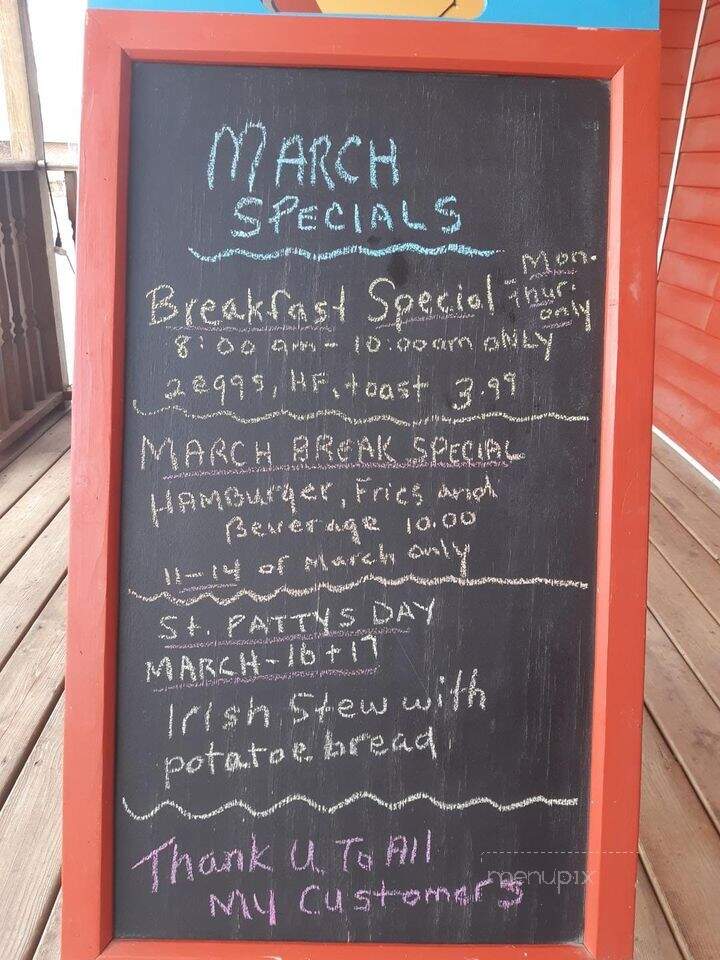 MARCH
SPECIALS
Breakfast Special - Mon.
Thur.
only
8:00 am - 10:00am ONLY
2 eggs, HF, toast 3.99
MARCH BREAK SPECIAL
HAMBurger, Fries and
Beverage 10.00
11-14 of March only
St. PATTYS DAY
MARCH-16+17
Irish Stew with
potatoe bread
Thank U To All
My Customers
menupix